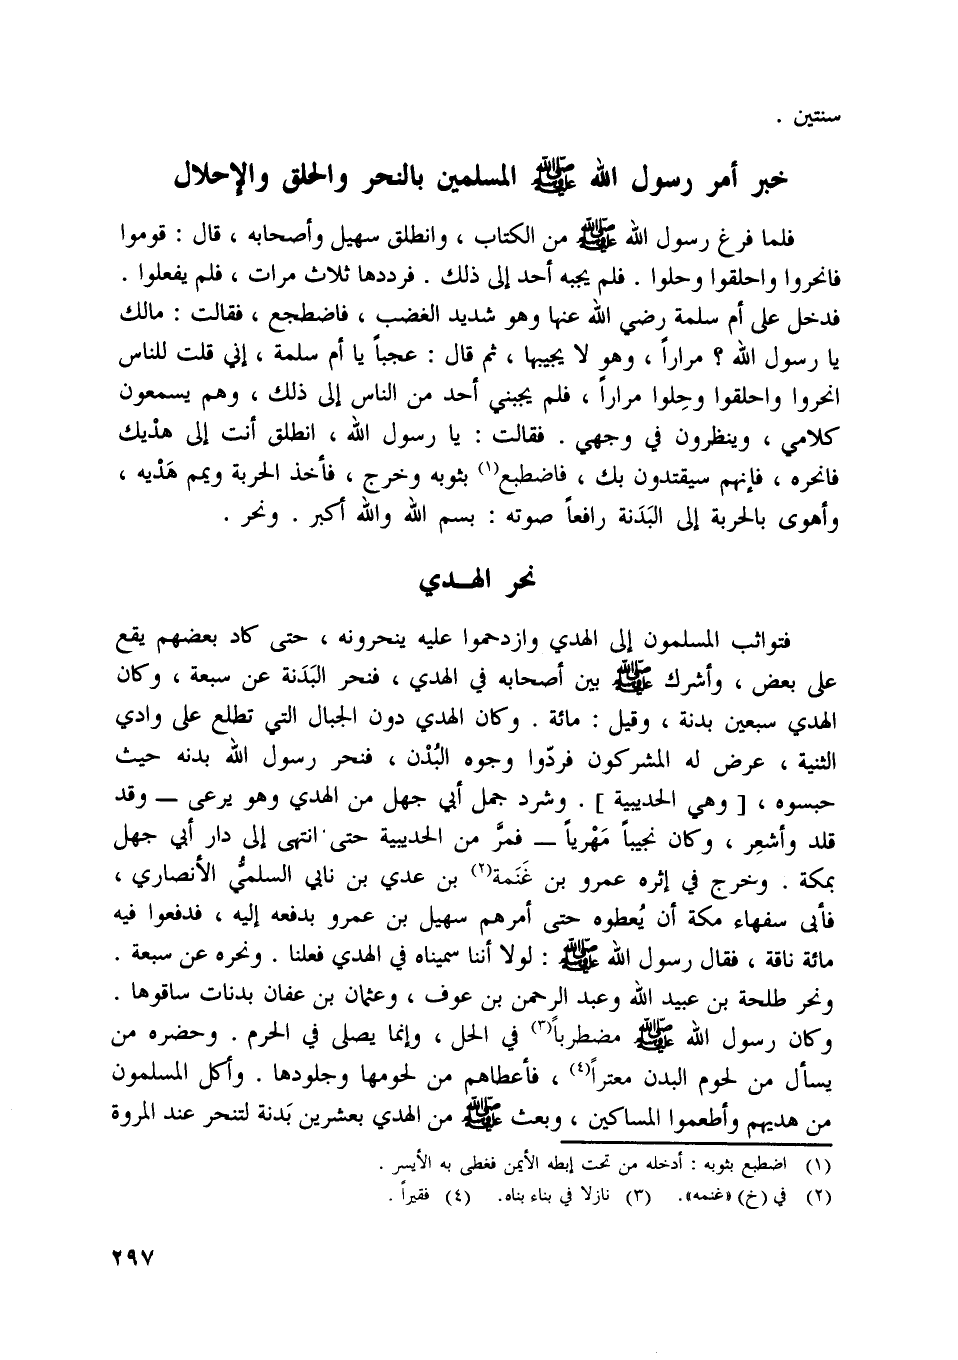 سنتين .
خبر أمر رسول الله ﷺ المسلمين بالنحر والحلق والإحلال
فلما فرغ رسول الله ﷺ من الكتاب ، وانطلق سهيل وأصحابه ، قال : قوموا
فانحروا واحلقوا وحلوا . فلم يجبه أحد إلى ذلك . فرددها ثلاث مرات ، فلم يفعلوا .
فدخل على أم سلمة رضي الله عنها وهو شديد الغضب ، فاضطجع ، فقالت : مالك
يا رسول الله ؟ مراراً ، وهو لا يجيبها ، ثم قال : عجباً يا أم سلمة ، إني قلت للناس
انحروا واحلقوا وحِلوا مراراً ، فلم يجبني أحد من الناس إلى ذلك ، وهم يسمعون
كلامي ، وينظرون في وجهي . فقالت : يا رسول الله ، انطلق أنت إلى هدْيك
فانحره ، فإنهم سيقتدون بك ، فاضطبع(١) بثوبه وخرج ، فأخذ الحربة ويمم هَدْيه ،
وأهوى بالحربة إلى البَدَنة رافعاً صوته : بسم الله والله أكبر . ونحر .
نحر الهـدي
فتواثب المسلمون إلى الهدي وازدحموا عليه ينحرونه ، حتى كاد بعضهم يقع
على بعض ، وأشرك ﷺ بين أصحابه في الهدي ، فنحر البَدَنة عن سبعة ، وكان
الهدي سبعين بدنة ، وقيل : مائة . وكان الهدي دون الجبال التي تطلع على وادي
الثنية ، عرض له المشركون فردّوا وجوه البُدْن ، فنحر رسول الله بدنه حيث
حبسوه ، [ وهي الحديبية ] . وشرد جمل أبي جهل من الهدي وهو يرعى — وقد
قلد وأشعِر ، وكان نجيباً مَهْرياً — فمرَّ من الحديبية حتى انتهى إلى دار أبي جهل
بمكة . وخرج في إثره عمرو بن غَنَمة(٢) بن عدي بن نابي السلميُّ الأنصاري ،
فأبى سفهاء مكة أن يُعطوه حتى أمرهم سهيل بن عمرو بدفعه إليه ، فدفعوا فيه
مائة ناقة ، فقال رسول الله ﷺ : لولا أننا سميناه في الهدي فعلنا . ونحره عن سبعة .
ونحر طلحة بن عبيد الله وعبد الرحمن بن عوف ، وعثمان بن عفان بدنات ساقوها .
وكان رسول الله ﷺ مضطرباً(٣) في الحل ، وإنما يصلى في الحرم . وحضره من
يسأل من لحوم البدن معتراً(٤) ، فأعطاهم من لحومها وجلودها . وأكل المسلمون
من هديهم وأطعموا المساكين ، وبعث ﷺ من الهدي بعشرين بَدنة لتنحر عند المروة
(١) اضطبع بثوبه : أدخله من تحت إبطه الأيمن فغطى به الأيسر .
(٢) في (خ) «غنمه». (٣) نازلا في بناء بناه. (٤) فقيراً .
٢٩٧